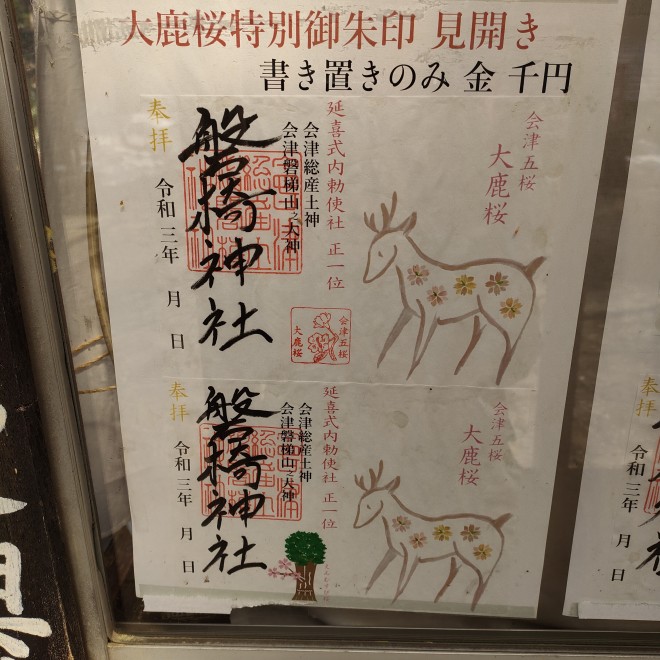 大鹿桜特別御朱印 見開き
書き置きのみ 金 千円
会津五桜
大鹿桜
延喜式内勅使社 正一位
会津総産土神
会津磐梯山之大神
磐椅神社
奉拝
令和三年 月 日
会津五桜
大鹿桜
会津五桜
大鹿桜
延喜式内勅使社 正一位
会津総産土神
会津磐梯山之大神
磐椅神社
奉拝
令和三年 月 日
令和三年 月 日